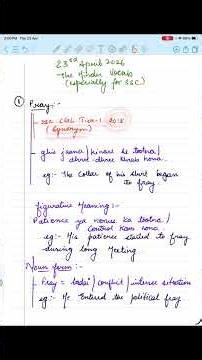 2:00 PM Thu 23 Apr
23rd April 2026
The Hindu Vocabs
(especially for SSC)
① Fray:-
SSC CGL Tier-1 2018
(Synonym)
- ghis jaana / kinare se tootna /
dhire-dhire kharab hona.
eg:- The Collar of his shirt began
to fray.
figurative Meaning:-
Patience ya nerves ka tootna /
Control kam hona.
eg:- His patience started to fray
during long Meeting
Noun form:-
- Fray = ladai / conflict / intense situation
eg:- He Entered the political fray.